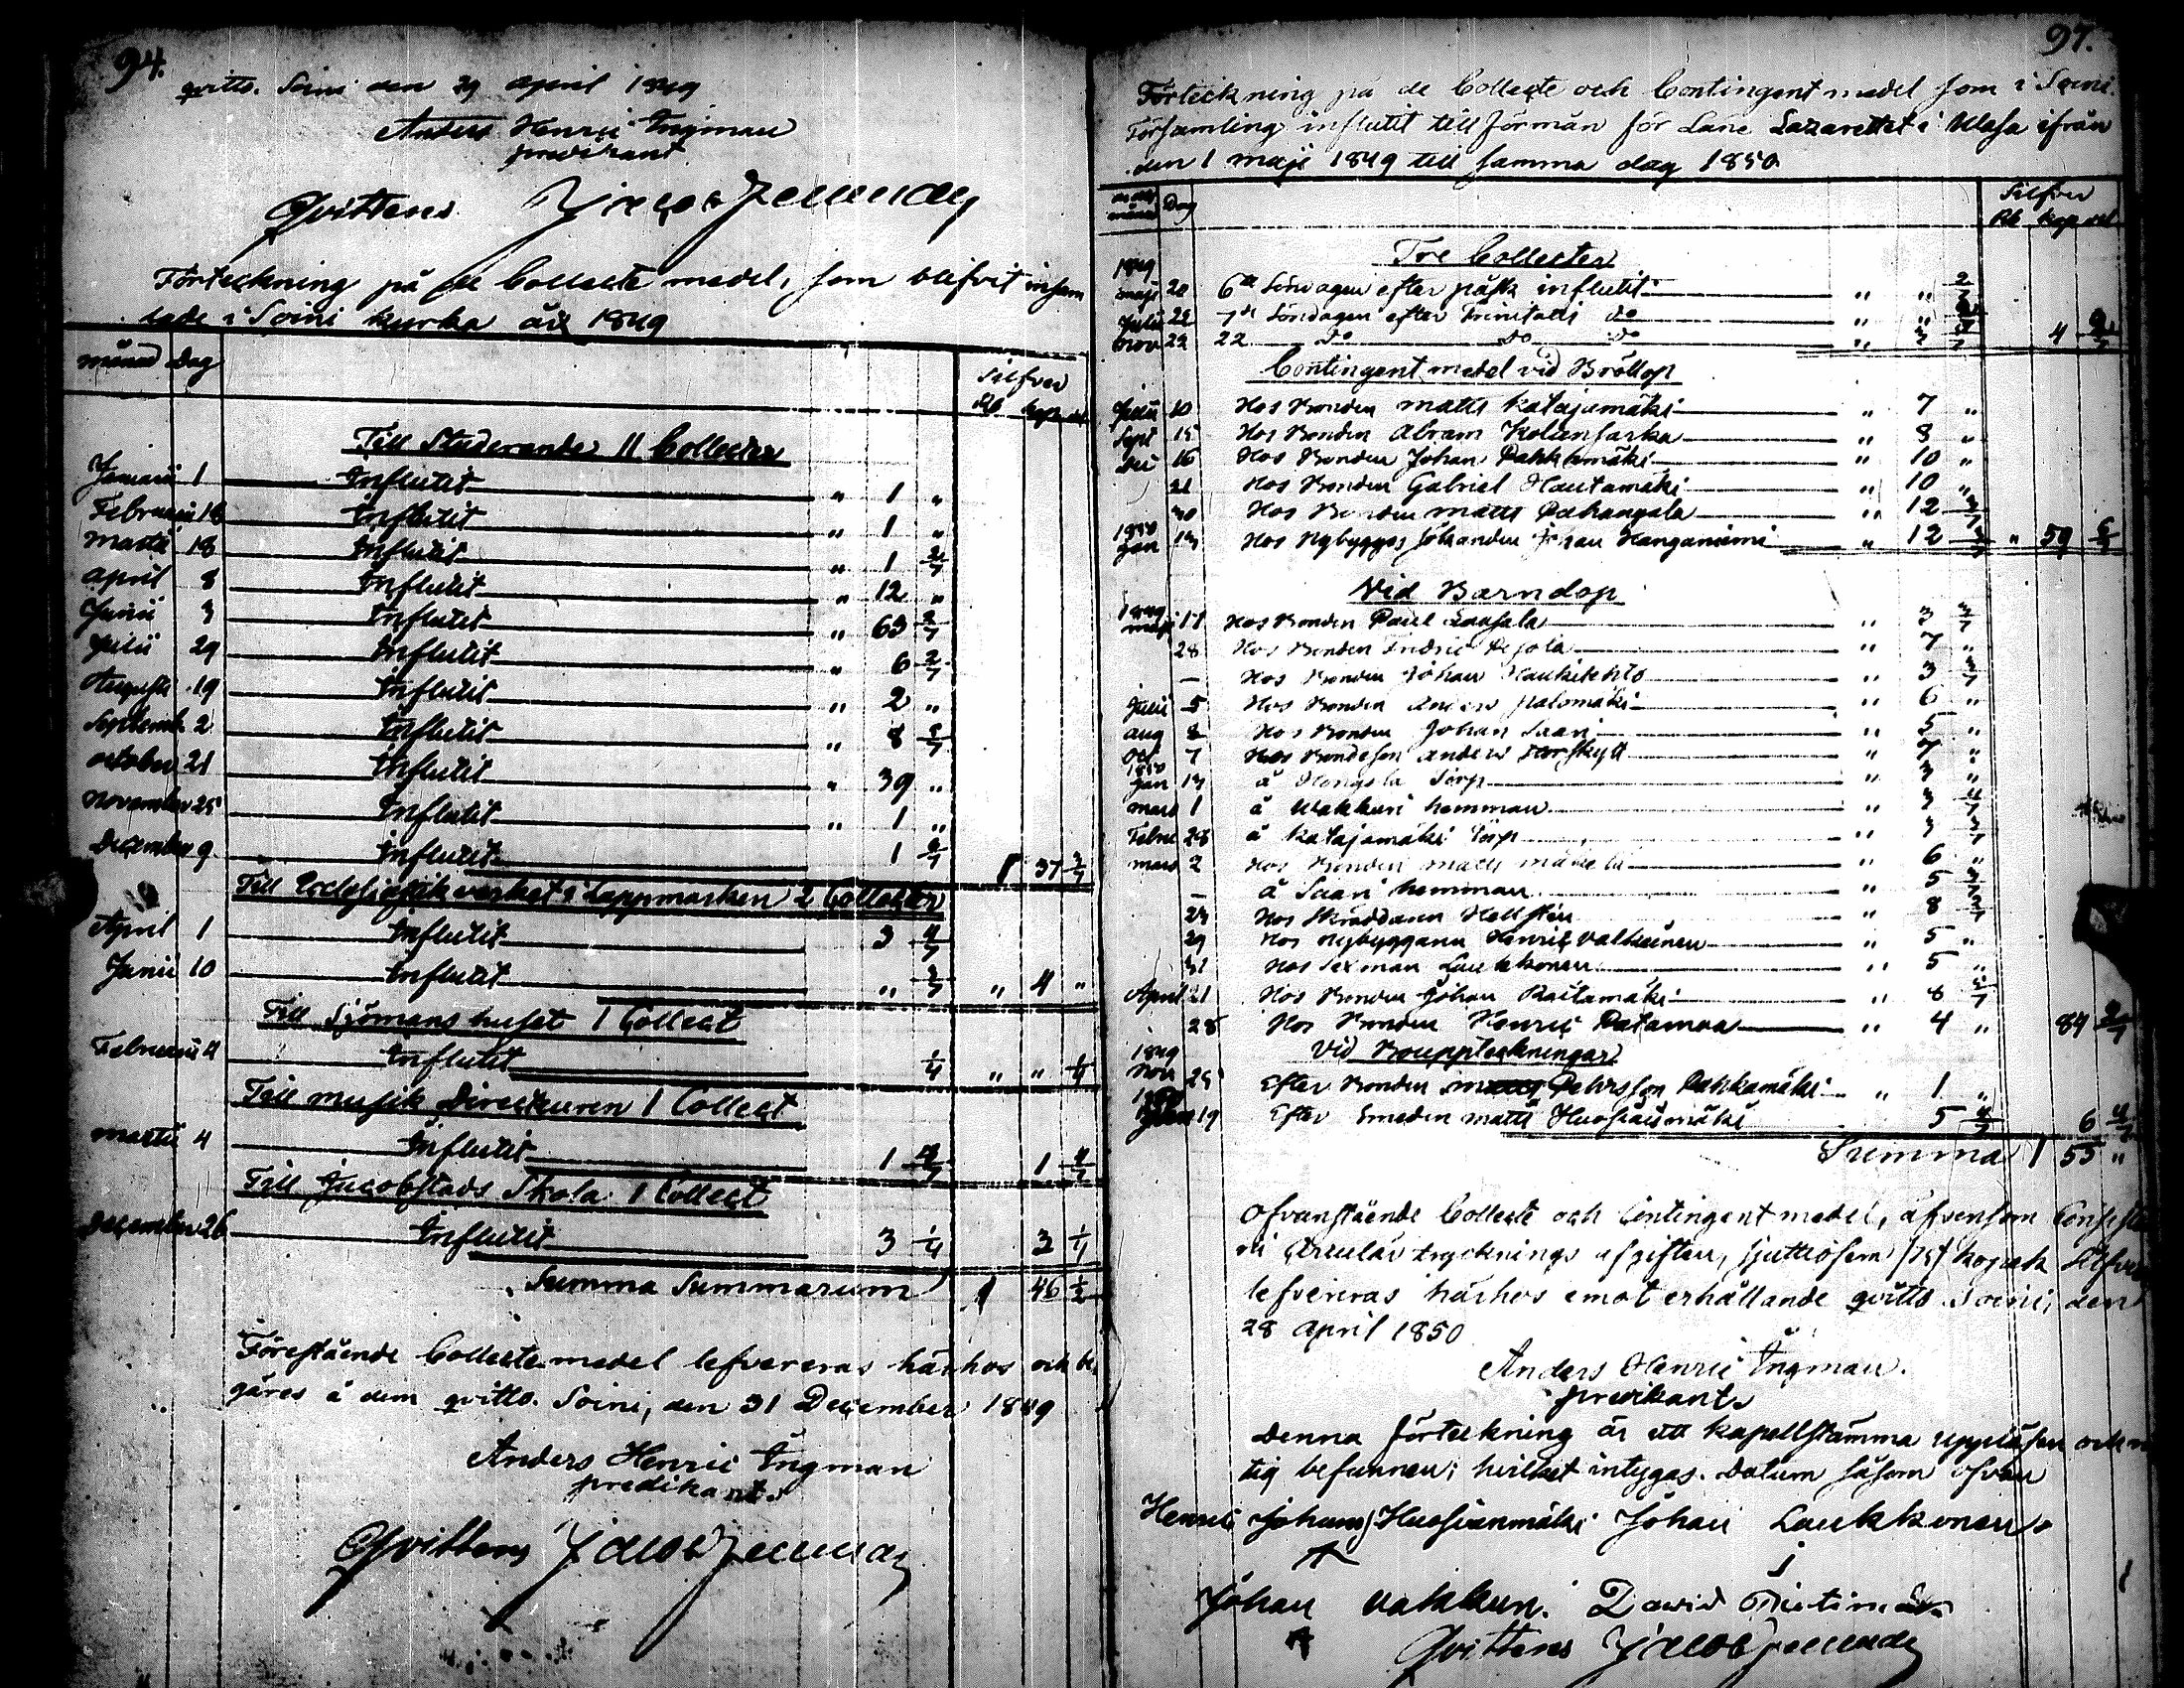 94.
qvitto. Soini den 29 April 1849
Anders Henric Ingman
predikant
Qvitteras Jacob
Förteckning på de Collecte medel, som blifvit insam
lade i Soini kyrka år 1849
månad Dag Silfver
Rb kop del
Till Studerande 11 Collecter
Januarii 1 Influtit " 1 "
Februarii 18 Influtit " 1 "
Martii 18 Influtit " 1 2/7
April 8 Influtit " 12 "
Junii 3 Influtit " 63 2/7
Julii 29 Influtit " 6 2/7
Augusti 19 Influtit " 2 "
Septemb. 2 Influtit " 8
october 21 Influtit " 39 "
November 25 Influtit " 1 "
December 9 Influtit 1 1 37 3/7
Till verket i Lappmarken 2 Collecter
April 1 Influtit 3 4/7
Junii 10 Influtit " 3/7 " 4 "
Till Sjömans huset 1 Collect
Februarii 4 Influtit 1/4 " " 1/4
Till musik Directeuren 1 Collect
martii 4 Influtit 1 4/7 1 4/7
Till Jacobstads Skola 1 Collect
December 26 Influtit 3 1/4 3 1/4
Summa Summarum 1 46 1/2
Förestående Collecte medel lefvereras härhos och be
gäres å dem qvitto. Soini, den 31 December 1849
Anders Henric Ingman
predikant.
Qvitteras Jacob
97.
Förteckning på de Collecte och Contingent medel som i Soini
Församling influtit till förmån för Läne Lazarettet i Wasa ifrån
den 1 maji 1849 till samma dag 1850
månad Dag Silfver
Rb kop del
Tre Collecter
1849
maji 20 6te Söndagen efter påsk influtit " " 2/7
Julii 22 7de Söndagen efter Trinitatis do " "
nov 22 do do do " 3 4
Contingent medel vid Bröllop
Julii 10 Hos Bonden matts Katajamäki " 7 "
Sept 15 Hos Bonden Abram Kolunsarka " 8 "
Dec 16 Hos Bonden Johan Pahkamäki " 10 "
21 Hos Bonden Gabriel Hautamäki " 10 "
30 Hos Bonden matts Pahangala " 12 3/7
1850
jan 13 Hos Nybyggar Johan Kanganiemi " 12 " 59 6/7
Vid Barndop
1849
maji 17 Hos Bonden Paul Laasala " 3 3/7
28 Hos Bonden Fridric Pesola " 7 "
— Hos Bonden Johan Haukilehto " 3 3/7
Julii 5 Hos Bonden Anders palomäki " 6 "
aug 8 Hos Bonden Johan Saari " 5 "
oct 7 Hos Bondeson anders Torskytt " 7 "
1850
jan 13 å Hongola Torp " 3 "
mars 1 å Wakkuri hemman " 3 4/7
Febr 28 å Katajamäki Torp " 3 3/7
mars 2 Hos Bonden matts mäkelä " 6 "
— å Saari hemman " 5
24 Hos Skräddaren Hellsten " 8
29 Hos nybyggaren Henric Valkeinen " 5 "
31 Hos Sexman Laukkonen " 5 "
April 21 Hos Bonden Johan Raitamäki " 8
28 Hos Bonden Henric Patamaa " 4 " 84 2/7
Vid Bouppteckningar
1849
nov 25 Efter Bonden Pehrsson Pahkamäki " 1 "
1850
19 Efter Smeden matts Huosianmäki 5 4/7 6 4/7
Summa 1 55 "
Ofvanstående Collecte och Contingent medel, äfvensom
ri Circulär trycknings afgiften, sjuttiofem /75/ kopek Silfver
lefvereras härhos emot erhållande qvitto. Soini, den
28 April 1850
Anders Henric Ingman.
predikant.
Denna förteckning är vid kapellstämma uppläsen och
tig befunnen; hvilket intygas. Datum såsom ofvan
Henric Johans/ Huosianmäki Johan Laukkonen
Johan Vakkuri. David
Qvitteras Jacob